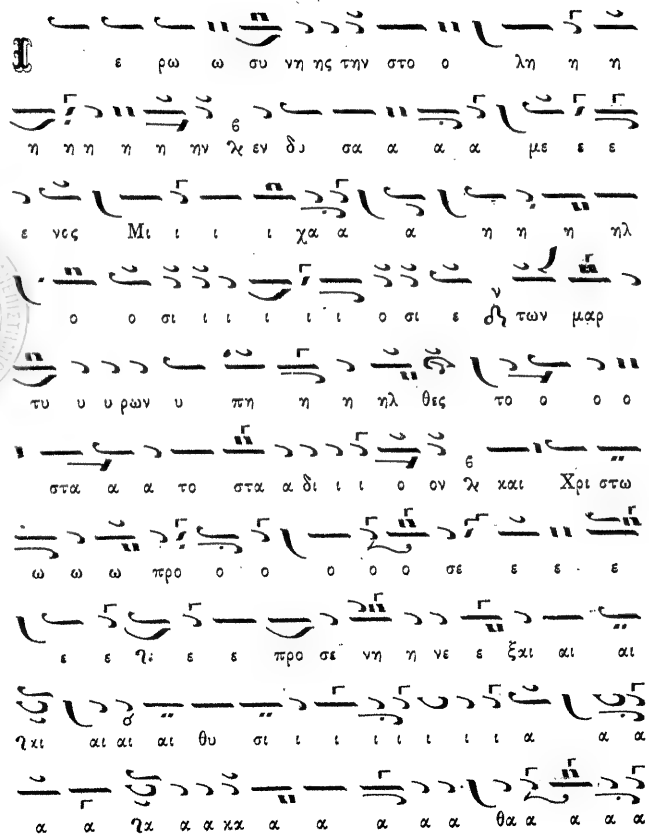 ε ρω ω συ νη ης την στο ο λη η η
η η η η η ην εν δυ σα α α α με ε ε
ε νος Μι ι ι ι χα α α η η η ηλ
ο ο σι ι ι ι ι ι ο σι ε των μαρ
τυ υ υ ρων υ πη η η ηλ θες το ο ο ο
στα α α το στα α δι ι ι ο ον και Χρι στω
ω ω ω προ ο ο ο ο ο σε ε ε ε
ε ε ε ε προ σε νη η νε ε ξαι αι αι
αι αι αι θυ σι ι ι ι ι ι ι ι α α α
α α α α κα α α α α α θα α α α α